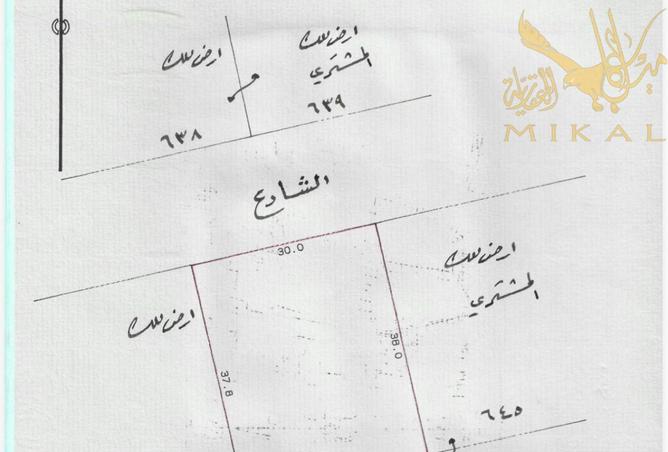 ميكال
العقارية
MIKAL
ارض لملك
ارض لملك
المشتري
٦٣٨
٦٣٩
الشارع
30.0
ارض لملك
المشتري
ارض لملك
37.8
38.0
٦٤٥